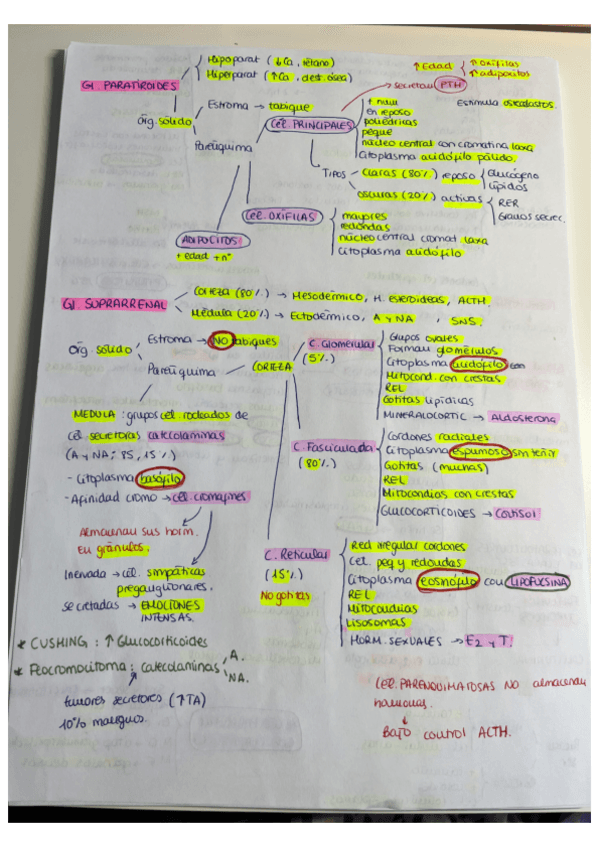 Hipoparat (↓Ca, tétano)
Hiperparat (↑Ca, dest. ósea)
↑Edad ↑oxífilas
↑adipocitos
Gl. PARATIROIDES
secretan PTH
Estroma → tabique
+ num
Estimula osteoclastos.
Órg. sólido
Cél. PRINCIPALES
en reposo
poliédricas
peque
Parénquima
núcleo central con cromatina laxa
Citoplasma acidófilo pálido.
TIPOS
claras (80%) reposo
Glucógeno
Lípidos
oscuras (20%) activas
RER
Granulos secrec.
Cél. OXÍFILAS
mayores
redondas
núcleo central cromat. laxa
Citoplasma acidófilo
ADIPOCITOS
+ edad + nº
Gl. SUPRARRENAL
Corteza (80%) → Mesodérmico, H. esteroideas, ACTH.
Médula (20%) → Ectodérmico, A y NA, SNS.
Órg sólido
Estroma → NO tabiques
Parénquima
CORTEZA
C. Glomerular
(5%)
Grupos ovales
Forman glomérulos
Citoplasma acidófilo
Mitocond. con crestas
REL
Gotitas lipídicas
MINERALOCORTIC → Aldosterona
MEDULA: grupos cél. rodeados de
cél secretoras catecolaminas
(A y NA; 85, 15%)
- Citoplasma basófilo
- Afinidad cromo → cél. cromafines
C. Fasciculada
(80%)
Cordones radiales
Citoplasma espumoso sin teñir
Gotitas (muchas)
REL
Mitocondias con crestas
GLUCOCORTICOIDES → Cortisol
Almacenan sus horm.
en gránulos.
Inervada → cél. simpáticas
preganglionares.
secretadas → EMOCIONES
INTENSAS.
C. Reticular
(15%)
No gotitas
Red irregular cordones
Cel. peq y redondas
Citoplasma eosinófilo con LIPOFUCSINA
REL
Mitocondrias
Lisosomas
HORM. SEXUALES → E2 y T.
* CUSHING: ↑ Glucocorticoides
* Feocromocitoma: catecolaminas A.
NA.
tumores secretores (↑TA)
10% malignos.
CEL. PARENQUIMATOSAS NO almacenan
hormonas.
BAJO control ACTH.